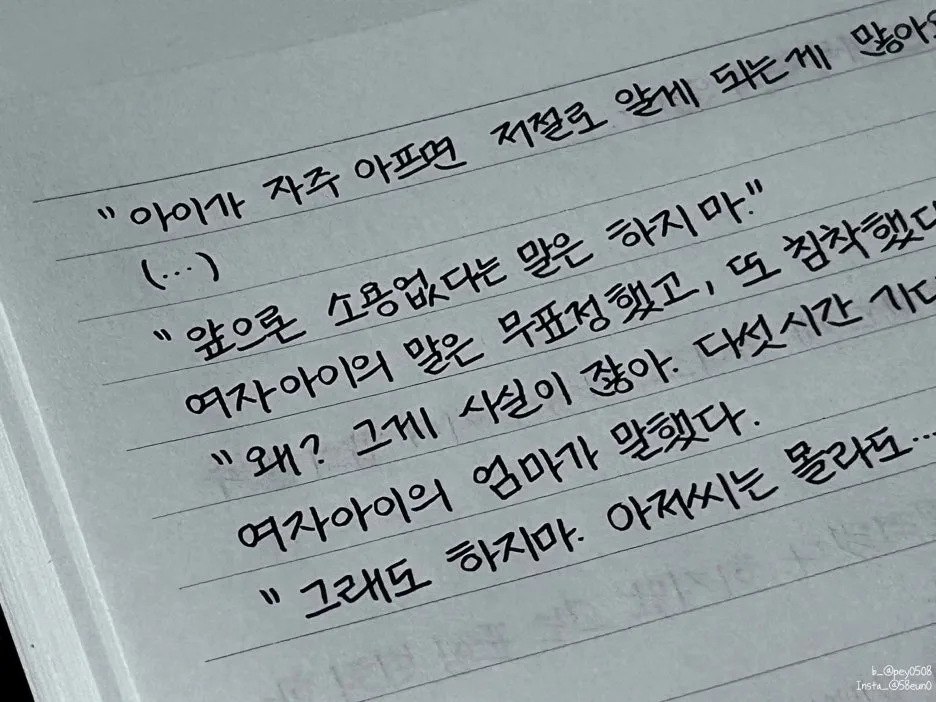 "아이가 자주 아프면 저절로 알게 되는게 많아요
(...)
"앞으론 소용없다는 말은 하지 마."
여자아이의 말은 무표정했고, 또 침착했다
"왜? 그게 사실이 잖아. 다섯시간 기다
여자아이의 엄마가 말했다.
"그래도 하지마. 아저씨는 몰라도...
b_@pey0508
Insta_@58eun0